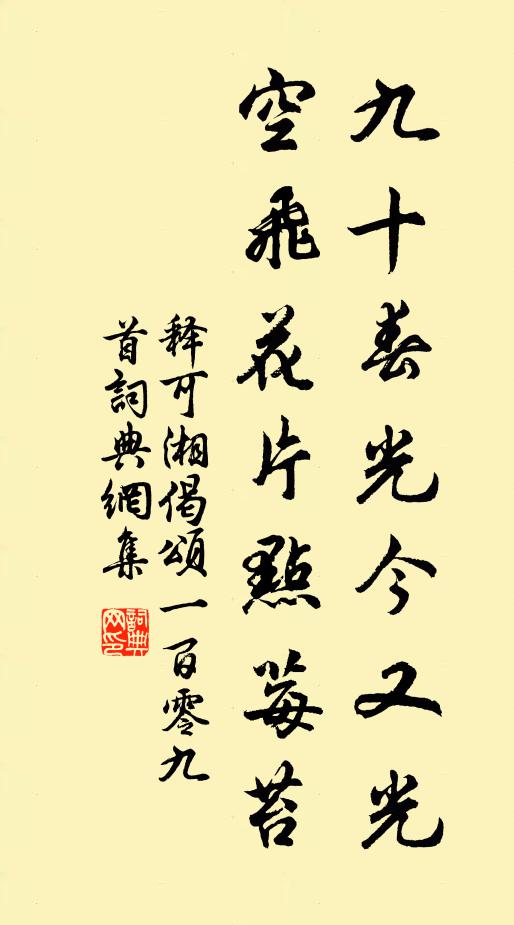 九十春光今又光
空飛花片點莓苔
释可湘偈頌一百零九
首詞典網集
詞典
网印